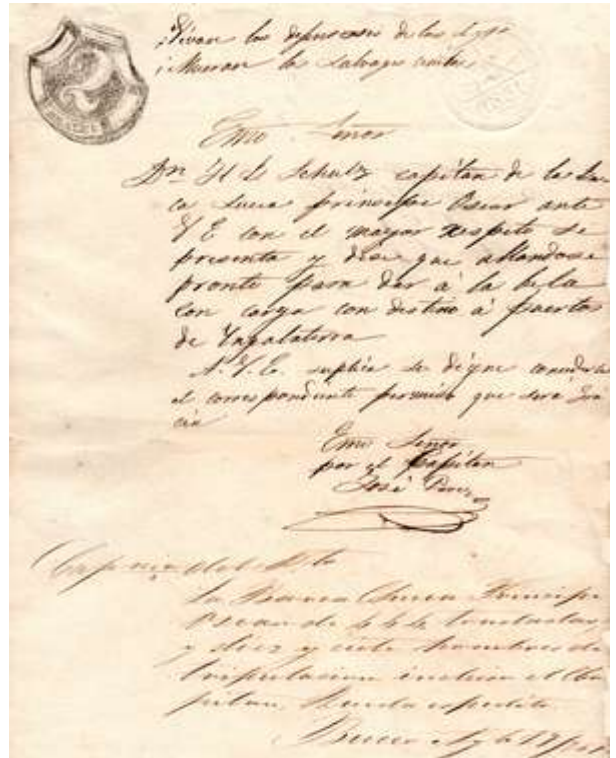 ¡Vivan los defensores de las Leyes
¡Mueran los Salvages
Exmo Señor
Dn H L Schulz capitan de la bar
ca Sueca principe Oscar ante
V E con el mayor respeto se
presenta y dise que allandose
pronto para dar à la bela
con carga con destino à puerto
de Yngalaterra
A. V. E. suplica se digne concederle
el correspondiente permiso que será gra
cia
Exmo Señor
por el Capitan
José Perez
Capnia del Pto
La Barca Sueca Principe
Oscar de 444 toneladas
y diez y siete hombres de
tripulacion incluso el Ca
pitan, Queda espedita
Buceo